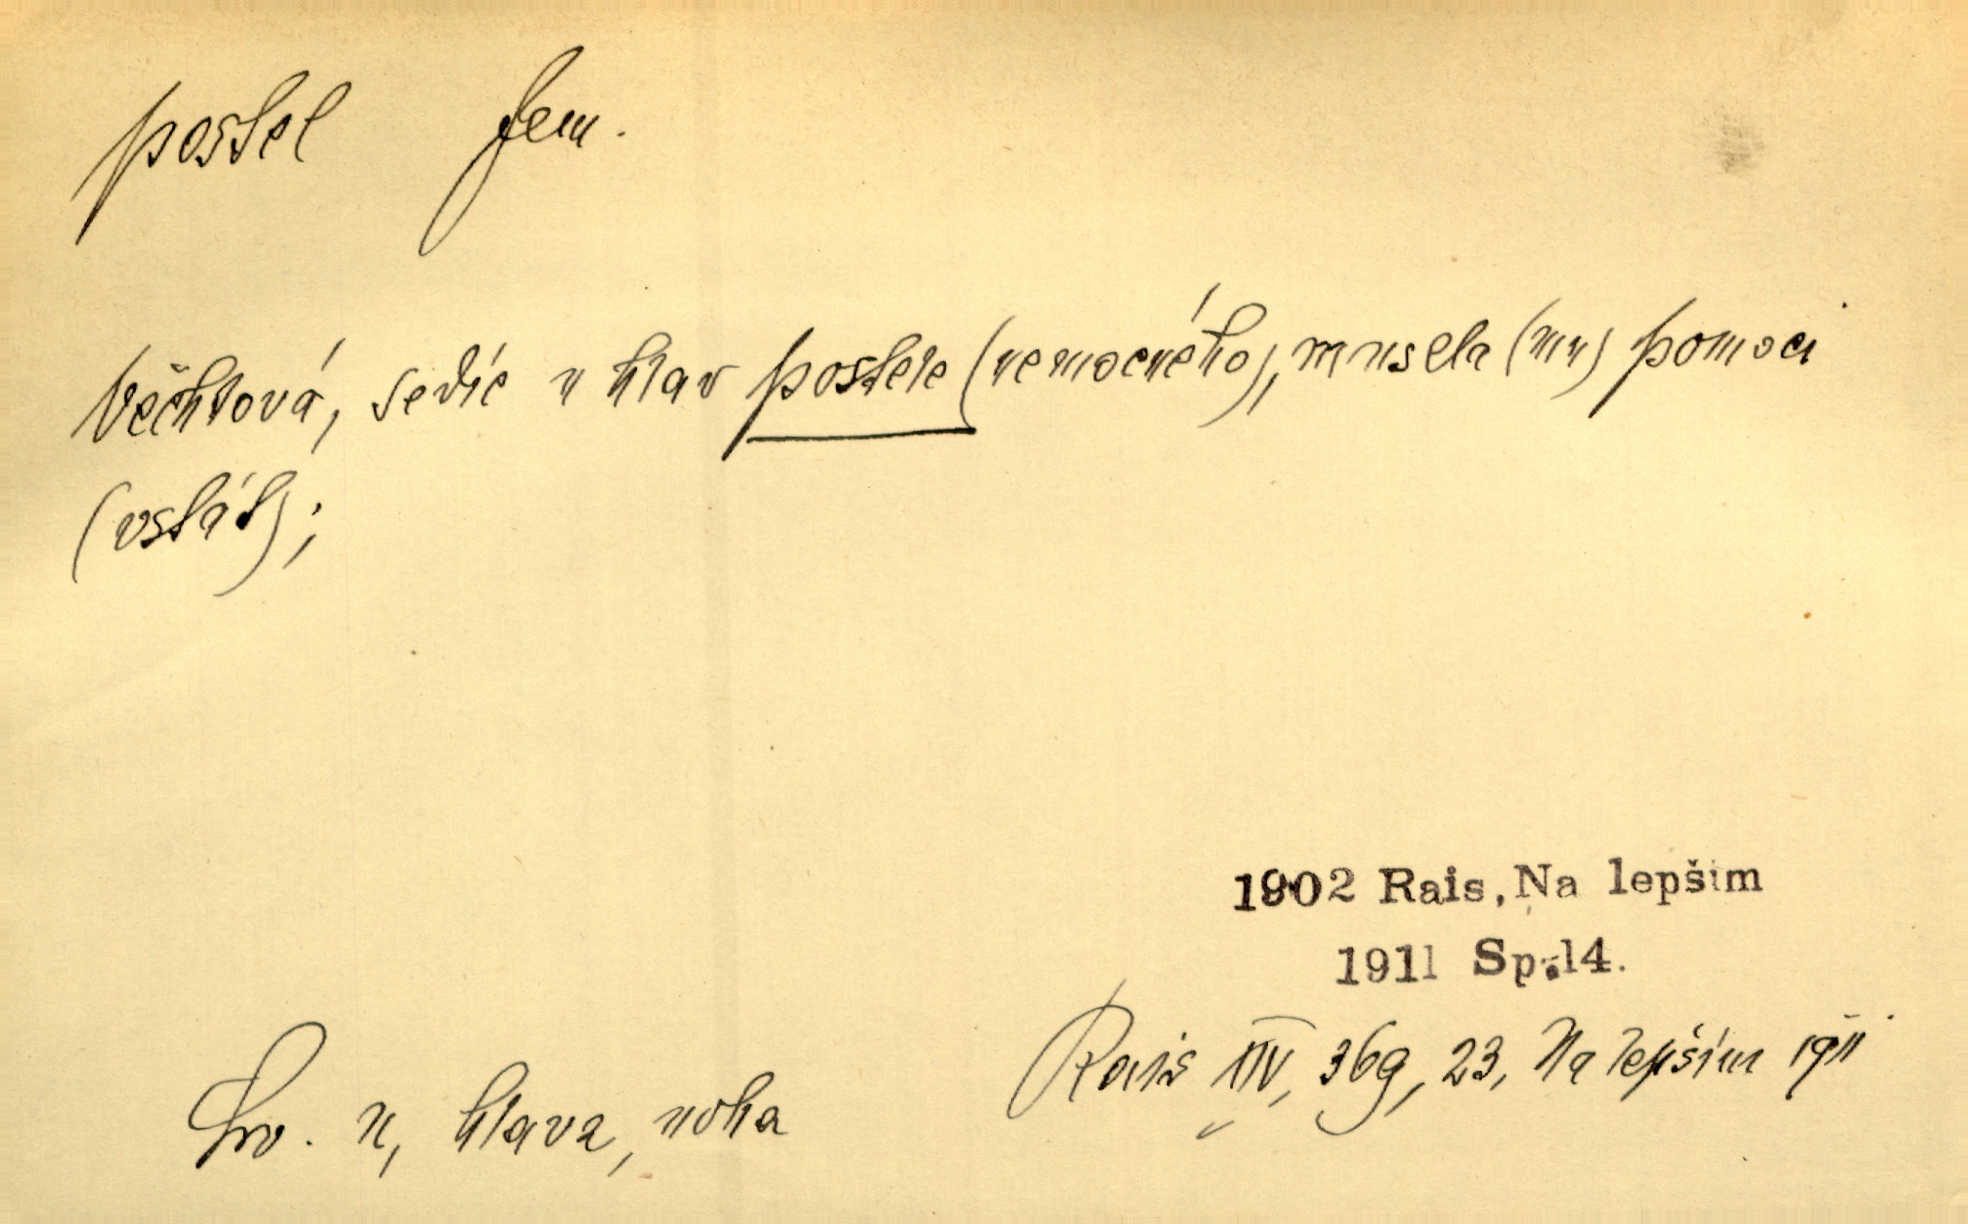 postel fem.
Věchtová, sedíc u hlav postele (nemocného), musela (mu) pomoci
(vstát);
1902 Rais, Na lepším
1911 Sp.14.
Rais XIV, 369, 23, Na lepším 1911
Srv. u, hlava, noha